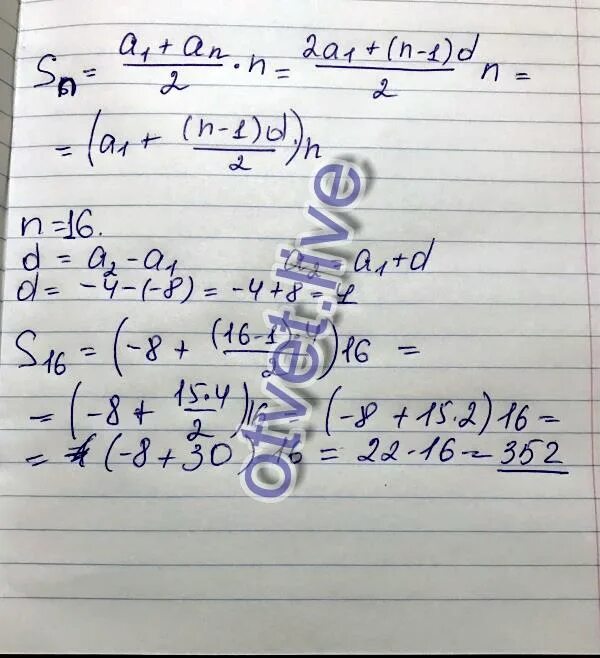 Sn = (a1 + an)/2 · n = (2a1 + (n-1)d)/2 n =
= (a1 + (n-1)d/2) n
n = 16.
d = a2 - a1 a2 = a1 + d
d = -4 - (-8) = -4 + 8 = 4
S16 = (-8 + (16-1)·4/2) 16 =
= (-8 + 15·4/2) 16 = (-8 + 15·2) 16 =
= (-8 + 30) 16 = 22·16 = 352
otvet.live